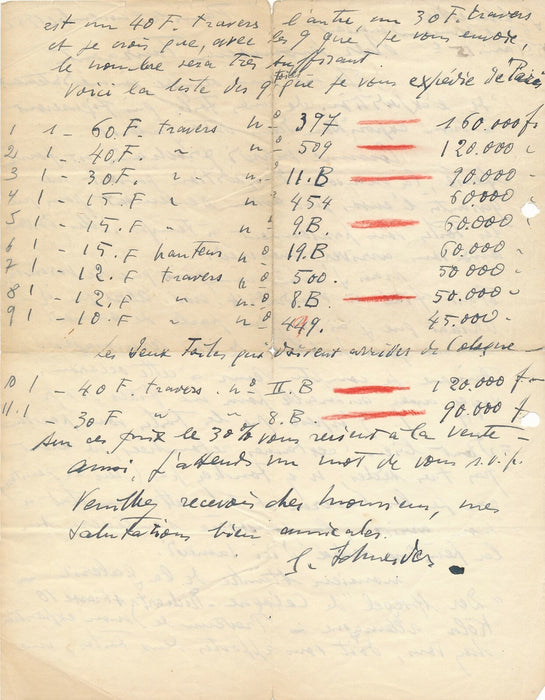 est un 40 F. travers l'autre, un 30 F. travers
et je crois que, avec les 9 que, je vous envoie,
le nombre sera très suffisant.
Voici la liste des 9 toiles que je vous expédie de Paris
1 1 - 60.F. travers nº 397 160.000 frs
2 1 - 40.F. " nº 509 120.000 "
3 1 - 30.F. " nº 11.B 90.000 "
4 1 - 15.F " nº 454 60.000 "
5 1 - 15.F. " nº 9.B. 60.000 "
6 1 - 15.F hauteur nº 19.B 60.000 "
7 1 - 12.F travers nº 500. 50.000 "
8 1 - 12.F " nº 8.B. 50.000 "
9 1 - 10.F " nº 449. 45.000 "
Les deux toiles qui doivent arriver de Cologne -
10 1 - 40 F. travers. nº II.B 120.000 frs
11.1 - 30 F " " 8.B. 90.000 f
Sur ces prix le 30% vous revient à la vente -
ainsi, j'attends un mot de vous s.v.p.
Veuillez recevoir cher monsieur, mes
salutations bien amicales.
G. Schneider